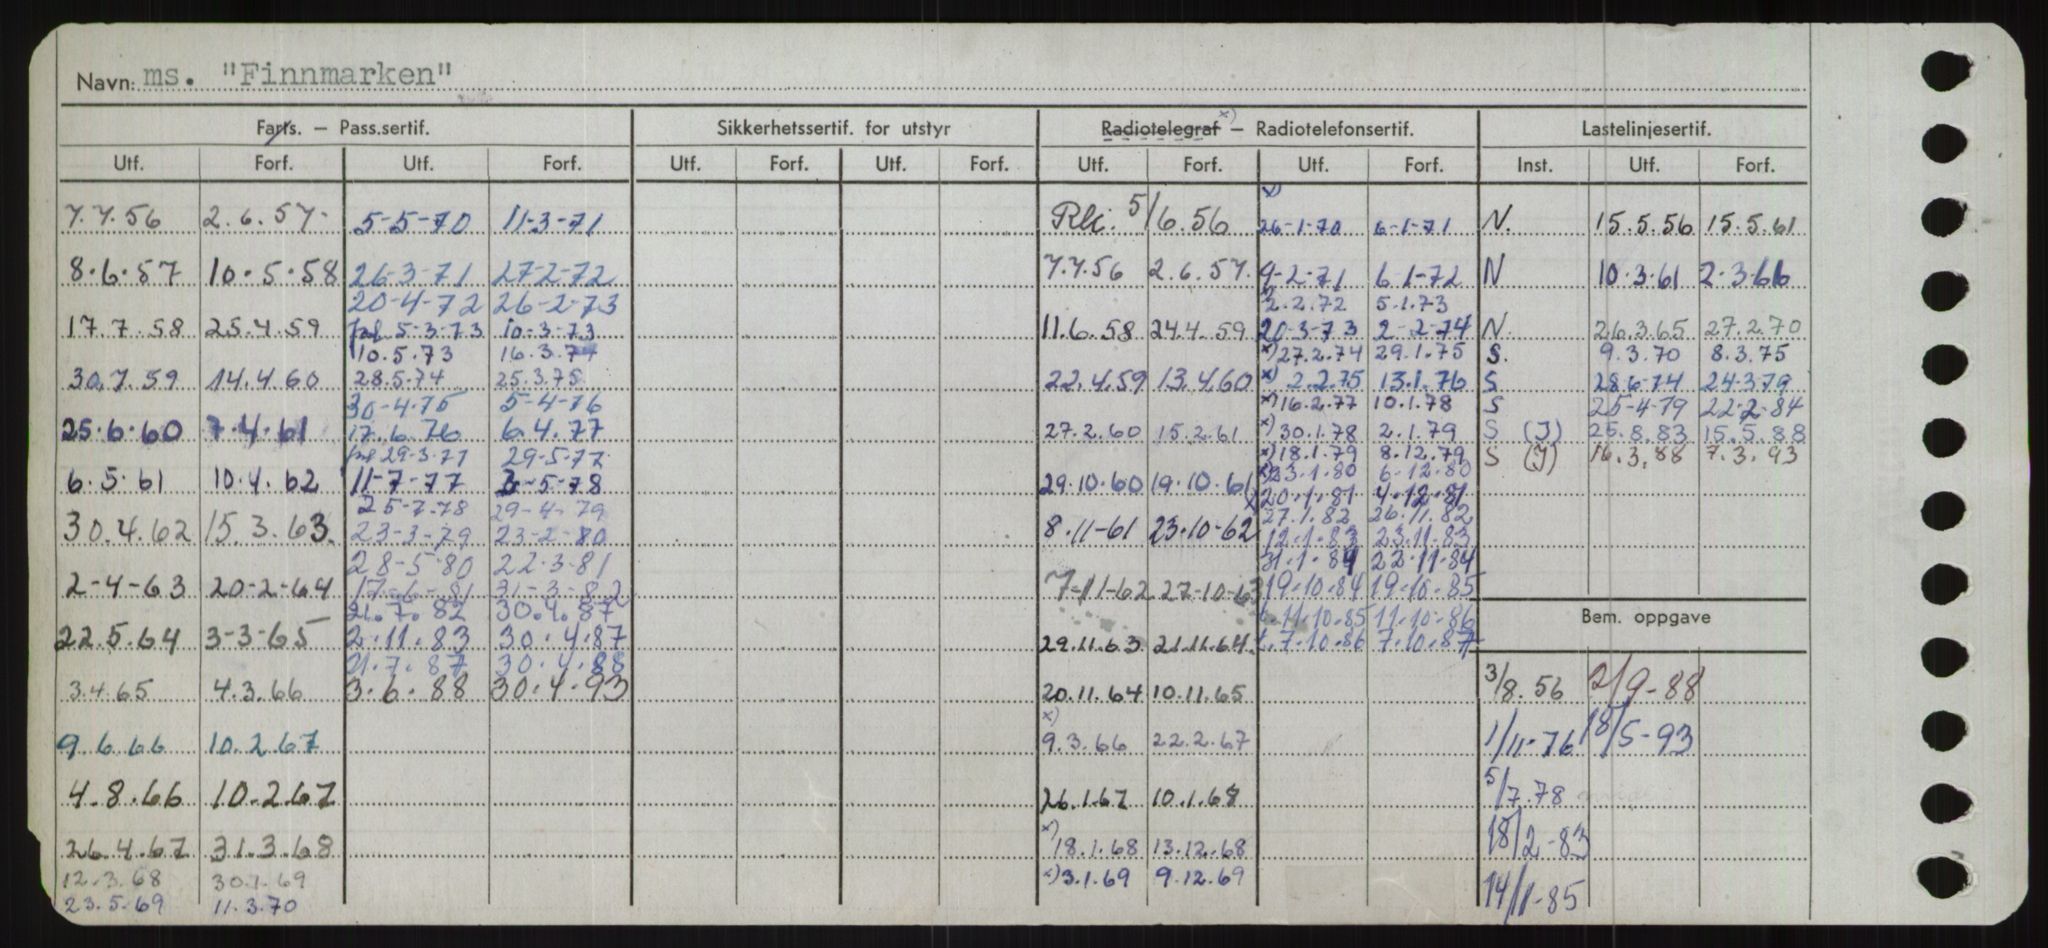 Navn: ms. "Finnmarken"
Farts. – Pass.sertif. Sikkerhetssertif. for utstyr Radiotelegraf x) – Radiotelefonsertif. Lastelinjesertif.
Utf. Forf. Utf. Forf. Utf. Forf. Utf. Forf. Utf. Forf. Utf. Forf. Inst. Utf. Forf.
7.7.56 2.6.57. 5-5-70 11-3-71 Rkc. 5/6.56 x) 26-1-70 6-1-71 N. 15.5.56 15.5.61
8.6.57 10.5.58 26-3-71 27-2-72 7.7.56 2.6.57. 9-2-71 6-1-72 N 10.3.61 2.3.66
20-4-72 26-2-73 x) 2.2.72 5.1.73
17.7.58 25.4.59 forl 5-3-73 10-3-73 11.6.58 24.4.59 20-3-73 2-2-74 N. 26.3.65 27.2.70
10.5.73 16.3.74 x) 27.2.74 29.1.75 S. 9.3.70 8.3.75
30.7.59 14.4.60 28.5.74 25.3.75 22.4.59 13.4.60 x) 2.2.75 13.1.76 S 28.6-74 24.3.79
30-4-75 5-4-76 x) 16.2.77 10.1.78 S 25-4-79 22.2.84
25.6.60 7.4.61 17.6.76 6.4.77 27.2.60 15.2.61 x) 30.1.78 2.1.79 S (J) 25.8.83 15.5.88
forl 29-3-77 29-5-77 x) 18.1.79 8.12.79 S (J) 16.3.88 7.3.93
6.5.61 10.4.62 11-7-77 3-5-78 29.10.60 19.10.61 x) 23.1.80 6-12-80
25-7-78 29-4-79 x 20.1.81 4.12.81
30.4.62 15.3.63. 23-3-79 23-2-80 8.11-61 23.10-62 27.1.82 26.11.82
12.1.83 23.11.83
28-5-80 22.3.81 31.1.84 22.11.84
2-4-63 20-2-64 17-6-81 31-3-82 7-11-62 27-10-63 19.10.84 19.10.85
21.7.82 30.4.87 t.11.10.85 11.10.86 Bem. oppgave
22.5.64 3-3-65 2.11.83 30.4.87 29.11.63 21.11.64. t.7.10.86 7.10.87
21.7.87 30.4.88
3.4.65 4.3.66 3.6.88 30.4.93 20.11.64 10.11.65 3/8.56 2/9-88
9.6.66 10.2.67 x) 9.3.66 22.2.67 1/11-76 18/5-93
4.8.66 10.2.67 26.1.67 10.1.68 5/7.78
26.4.67 31.3.68 x) 18.1.68 13.12.68 18/2-83
12.3.68 30.1.69 x) 3.1.69 9.12.69 14/11-85
23.5.69 11.3.70